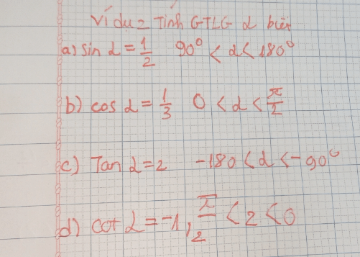 Ví dụ = Tính GTLG α biết
a) sin α = 1/2 90° < α < 180°
b) cos α = 1/3 0 < α < π/2
c) Tan α = 2 -180 < α < -90°
d) cot α = -1, π/2 < 2 < 0